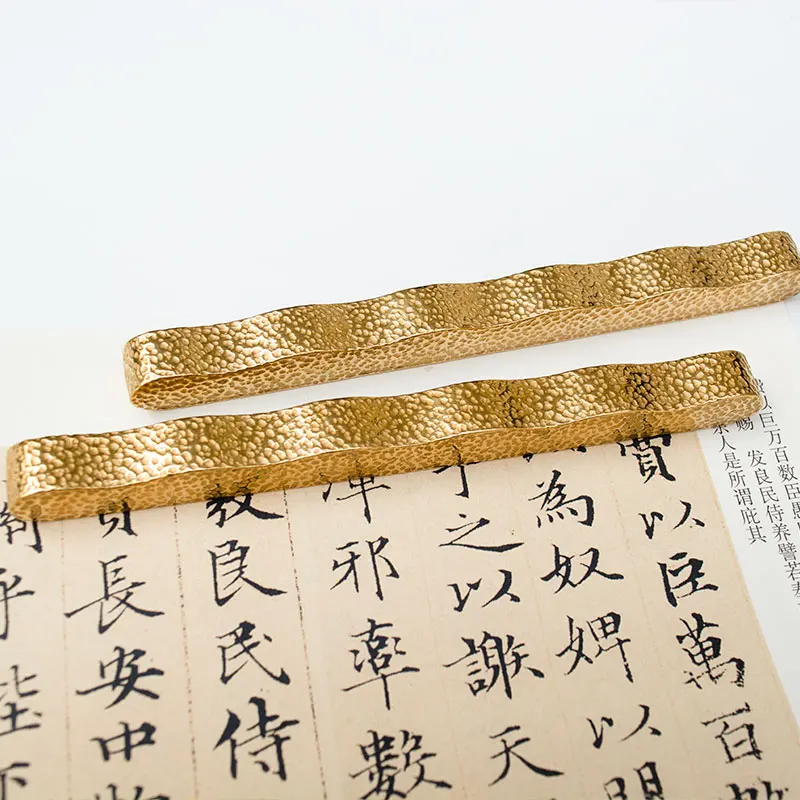 人巨万百数臣
赐 发良民侍养譬若
人是所谓庇其
以臣萬百
為奴婢以
之以謝天
渾邪率數
良民侍
長安中物
乎陛下